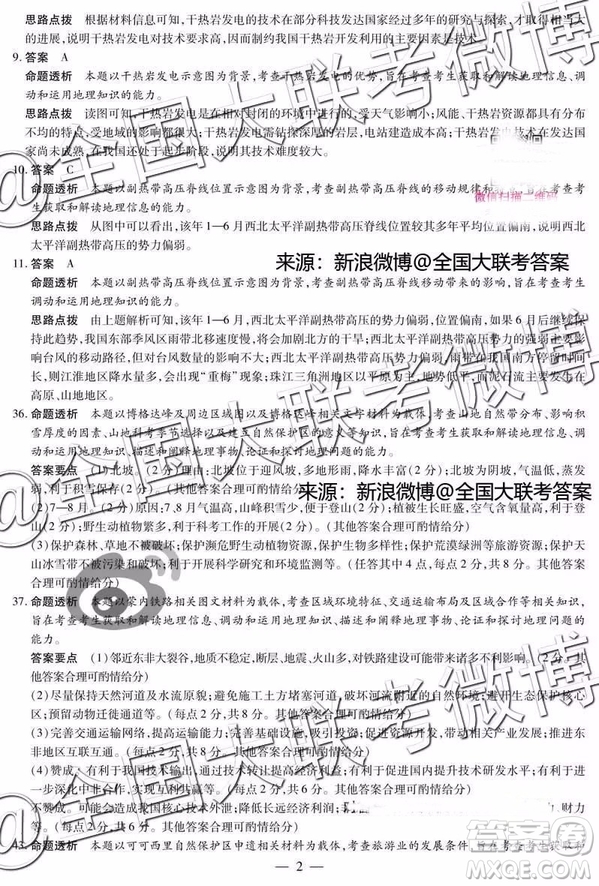 思路点拨 根据材料信息可知，干热岩发电的技术在部分科技发达国家经过多年的研究与探索，才取得相当大
的进展，说明干热岩发电对技术要求高，因而制约我国干热岩开发利用的主要因素是技术。
9. 答案 A
命题透析 本题以干热岩发电示意图为背景，考查干热岩发电的优势，旨在考查考生获取和解读地理信息、调
动和运用地理知识的能力。
思路点拨 读图可知，干热岩发电是在相对封闭的环境中进行的，受天气影响小；风能、干热岩资源都具有分
布不均的特点，受地区的影响都很大；干热岩发电需钻探深厚的岩层，电站建造成本高；干热岩发电技术在发达
国家尚未成熟，在我国还处于起步阶段，说明其安装难度大。
10. 答案 C
命题透析 本题以副热带高压脊线位置示意图为背景，考查副热带高压脊线的移动规律和
考生获取和解读地理信息的能力。
微信扫描二维码
思路点拨 从图中可以看出，该年1—6月西北太平洋副热带高压脊线位置较其多年平均位置偏南，说明西北
太平洋副热带高压的势力偏弱。
11. 答案 A
来源：新浪微博@全国大联考答案
命题透析 本题以副热带高压脊线位置示意图为背景，考查副热带高压脊线移动带来的影响，旨在考查考生
调动和运用地理知识的能力。
思路点拨 由上题解析可知，该年1—6月，西北太平洋副热带高压势力偏弱，位置偏南，如果6月后继续保
持此趋势，我国东部季风区雨带北移速度慢，将会加剧北方的干旱；西北太平洋副热带高压势力偏弱，会影响台
风的移动路径，但对大西洋飓风的影响较小；西北太平洋副热带高压势力偏弱，使得我国东部锋面雨带位置偏
南，则在江淮地区降水量多，或出现“重梅”现象；珠江三角洲地区以平原为主，而泥石流主要发生在
高原、山地地区。
36. 命题透析 本题以博格达峰及周边区域图以及博格达峰相关文字材料为载体，考查山地自然带分布、影响积
雪厚度的因素、山地科考季节选择以及资源保护等相关知识，旨在考查考生获取和解读地理信息、调动和运用
地理知识、描述和阐释地理事物、论证和探讨地理问题的能力。
答案要点 (1)北坡。（2分）理由：北坡为迎风坡，多地形雨，降水丰富（2分）；北坡为阴坡，气温低，蒸发
来源：新浪微博@全国大联考答案
(2)7—8月。（2分）原因：7、8月气温高，山峰积雪少，便于登山（2分）；植被生长旺盛，空气含氧量高，利于登
山（2分）；野生动植物繁多，利于科考工作的开展（2分）。（其他答案合理可酌情给分）
(3)保护森林、草地不被破坏；保护濒危野生动植物资源，保护生物多样性；保护荒漠绿洲等旅游资源；保护天
山冰雪带不被污染和破坏；利于开展科学研究和环境监测等。（任答其中4点，每点2分，共8分。其他答案合
理可酌情给分）
37. 命题透析 本题以蒙内铁路相关图文材料为载体，考查区域环境特征、交通运输布局与区域发展等相关知识，
旨在考查考生获取和解读地理信息、调动和运用地理知识、描述和阐释地理事物、论证和探讨地理问题的能
力。
答案要点 (1)邻近东非大裂谷，地质不稳定，断层、地震、火山多，对铁路建设可能造成影响。（每点2分，共6
分。其他答案合理可酌情给分）
(2)尽量保持天然河道及水流原貌；避免施工土方堵塞河道、破坏河流附近的自然环境；尽量避开生态保护核
心区。（每点2分，共6分。其他答案合理可酌情给分）
(3)完善交通运输网络，提高交通运输能力；完善基础设施，吸引投资；促进经济发展，提高就业率；推进东
非地区互联互通。（每点2分，共8分。其他答案合理可酌情给分）
(4)赞成。有利于我国技术输出，通过技术转让提高经济利益；有利于促进国内提升技术研发水平；有利于进一
步深化中非合作，实现互利共赢。（任答其中3点，每点2分，共6分。其他答案合理可酌情给分）
不赞成。可能会造成我国核心技术外泄；降低长远经济利润；
43. 命题透析 本题以可可西里自然保护区申遗相关材料为载体，考查旅游业的发展条件，旨在考查考生获取和
— 2 —
@全国大联考微博
@全国大联考微博
答案圈
MXQE.COM